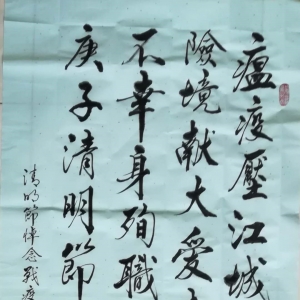 瘟疫壓江城
險境献大爱
不幸身殉職
庚子清明節
清明節悼念戰疫